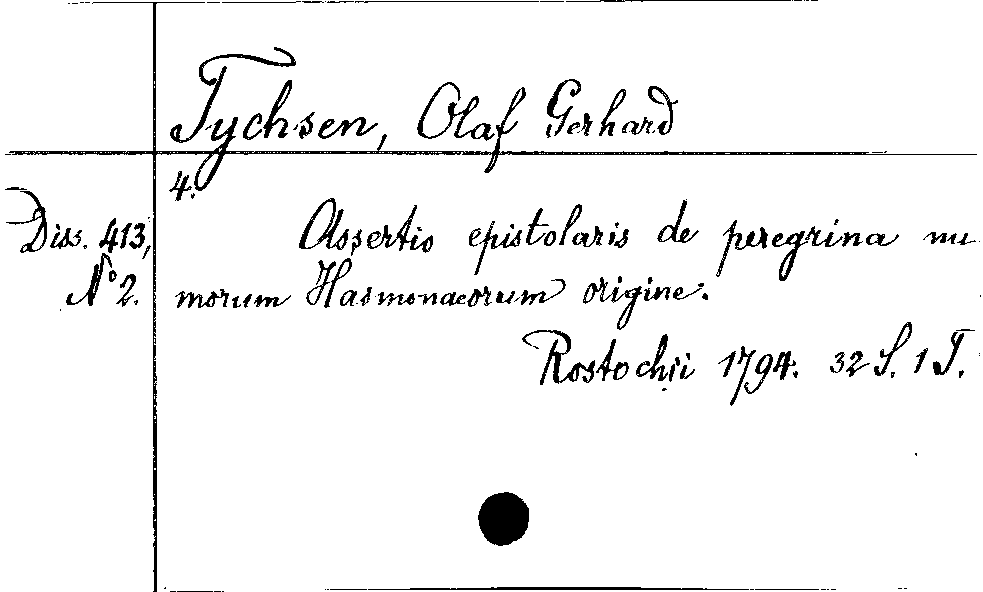 Tychsen, Olaf Gerhard
4.
Diss. 413,
No 2.
Assertio epistolaris de peregrina nu
morum Hasmonaeorum origine.
Rostochii 1794. 32 S. 1 T.